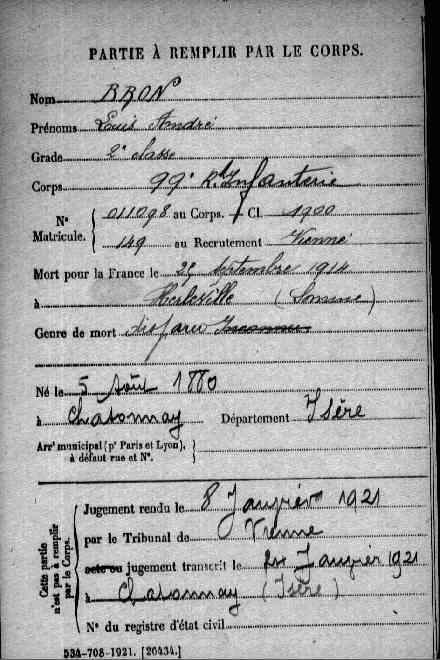 PARTIE À REMPLIR PAR LE CORPS.
Nom BRON
Prénoms Louis André
Grade 2e classe
Corps 99e Rt Infanterie
N° Matricule. 011098 au Corps. Cl. 1900
149 au Recrutement Vienne
Mort pour la France le septembre 1914
à Herleville (Somme)
Genre de mort disparu Inconnu
Né le 5 Août 1880
à Chatonnay Département Isère
Arrt municipal (pr Paris et Lyon), à défaut rue et N°.
Cette partie n'est pas à remplir par le Corps.
Jugement rendu le 8 Janvier 1921
par le Tribunal de Vienne
acte ou jugement transcrit le Janvier 1921
à Chatonnay (Isère)
N° du registre d'état civil
534-708-1921. [26434.]